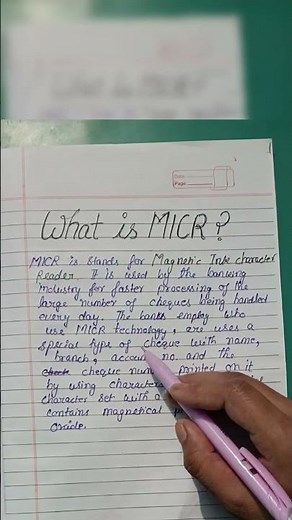 Date
Page
What is MICR?
MICR is stands for Magnetic Ink character
Reader. It is used by the banking
industry for faster processing of the
large number of cheques being handled
every day. The banks employ who
use MICR technology, are uses a
special type of cheque with name,
branch, account no. and the
cheque num printed on it
by using character
character set with a
contains magnetical
oxide.